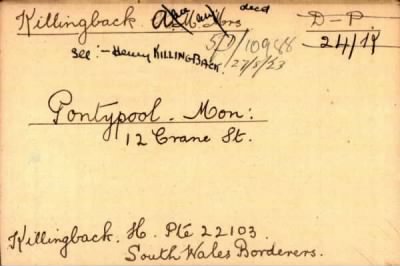 Killingback. A. M. Mrs decd D-P.
5/D/10948 24/17
see:- Henry KILLINGBACK. 27/8/23
Pontypool. Mon:
12 Crane St.
Killingback. H. Pte 22103.
South Wales Borderers.